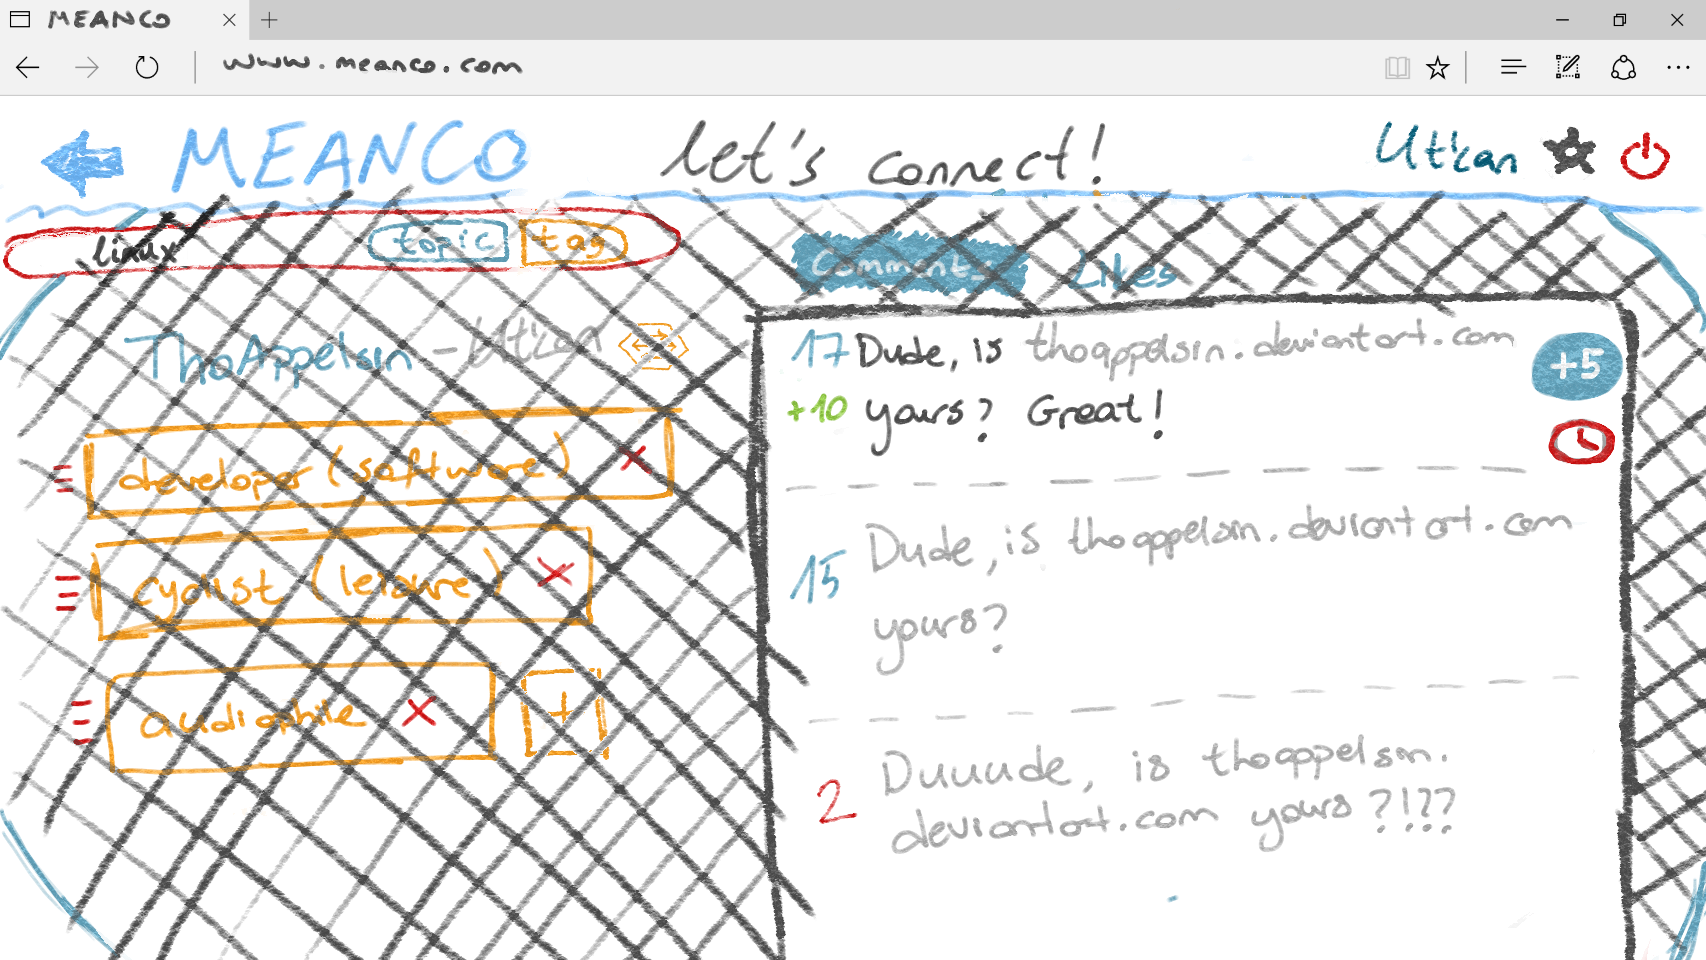 MEANCO
www.meanco.com
MEANCO let's connect! Utkan
linux topic tag
Comments Likes
ThoAppelsin - Utkan
developer (software) X
cyclist (leisure) X
audiophile X +
17 Dude, is thoappelsin.deviantart.com
+10 yours? Great!
+5
15 Dude, is thoappelsin.deviantart.com
yours?
2 Duuude, is thoappelsin.
deviantart.com yours?!??